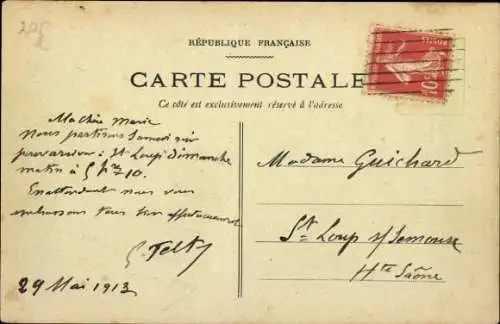 205
RÉPUBLIQUE FRANÇAISE
CARTE POSTALE
Ce côté est exclusivement réservé à l'adresse
POSTES
10c
Ma Chère Marie
Nous partirons Samedi soir
pour arriver à St Loup dimanche
matin à 5 hres 10.
En attendant nous vous
embrassons tous bien affectueusement
29 Mai 1913
Madame Guichard
St Loup s/Semouse
Hte Saône